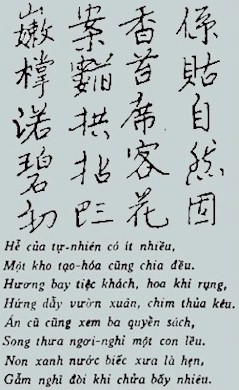 係貼自然固
香席客花
案拱拈巴
撑諾碧初
Hễ của tự-nhiên có ít nhiều,
Một kho tạo-hóa cũng chia đều.
Hương bay tiệc khách, hoa khi rụng,
Hứng dẫy vườn xuân, chim thủa kêu.
Án cũ cũng xem ba quyển sách,
Song thưa ngơi-nghỉ một con lều.
Non xanh nước biếc xưa là hẹn,
Gẫm nghĩ đòi khi chửa bấy nhiêu.